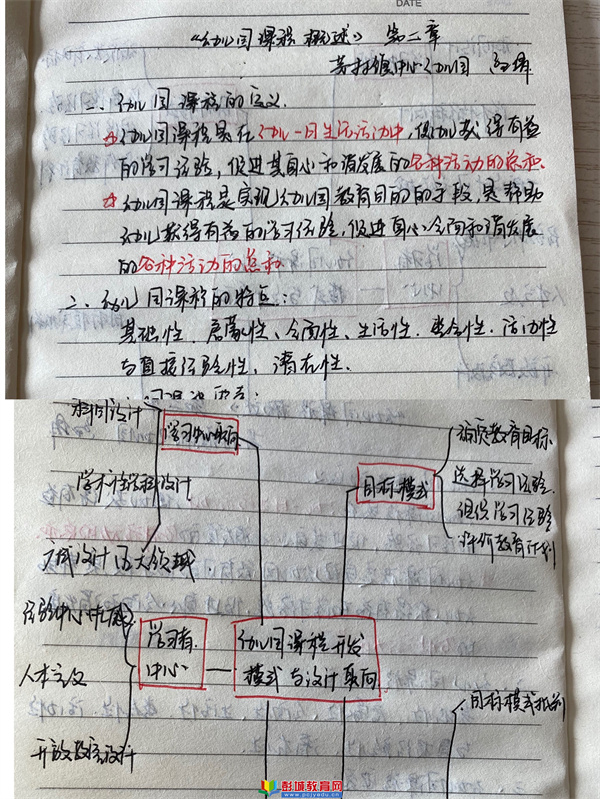 DATE
《幼儿园课程概述》 第二章
中心幼儿园
一、幼儿园课程的定义
☆幼儿园课程是在幼儿一日生活活动中,使幼儿获得有益
的学习经验,促进其身心和谐发展的各种活动的总和.
☆幼儿园课程是实现幼儿园教育目的的手段,是帮助
幼儿获得有益的学习经验,促进身心全面和谐发展
的各种活动的总和.
二、幼儿园课程的特点:
基础性、启蒙性、全面性、生活性、整合性、活动性
与直接经验性、潜在性.
科目设计
学习中心取向
确定教育目标
目标模式
选择学习经验
组织学习经验
评价教育计划
广域设计 五大领域
学习者
中心
幼儿园课程开发
模式与设计取向
人本主义
开放教室设计
目标模式批判
彭城教育网
www.pcjyedu.cn